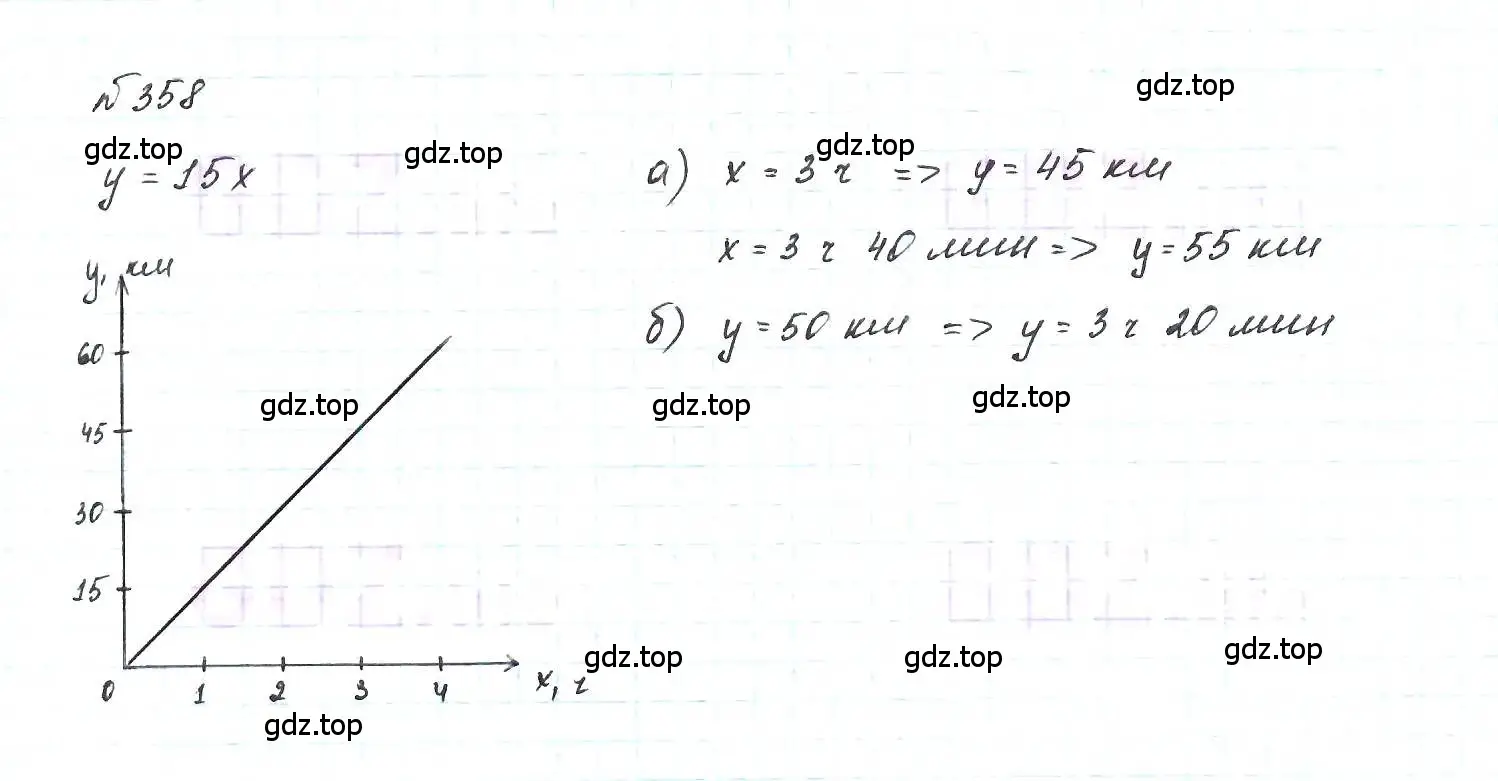 №358
gdz.top
gdz.top
gdz.top
gdz.top
y = 15x
а) x = 3 ч => y = 45 км
x = 3 ч 40 мин => y = 55 км
б) y = 50 км => y = 3 ч 20 мин
y, км
60
45
30
15
0
1
2
3
4
x, ч
gdz.top
gdz.top
gdz.top
gdz.top
gdz.top
gdz.top
gdz.top